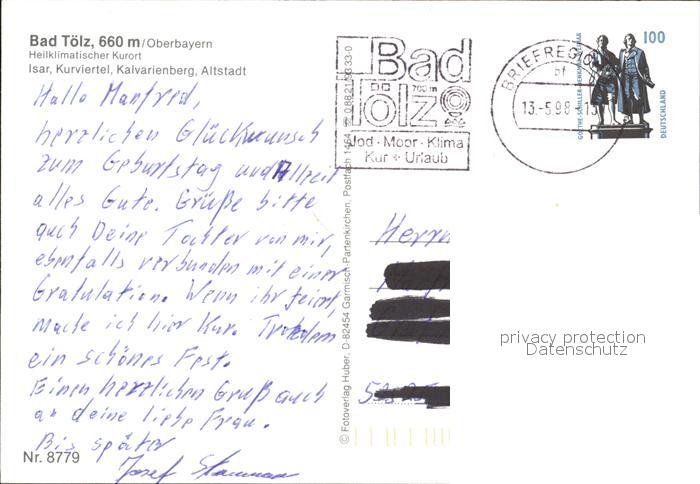 Bad Tölz, 660 m/Oberbayern
Heilklimatischer Kurort
Isar, Kurviertel, Kalvarienberg, Altstadt
Hallo Manfred,
herzlichen Glückwunsch
zum Geburtstag und Allzeit
alles Gute. Grüße bitte
auch Deine Tochter von mir,
ebenfalls verbunden mit einer
Gratulation. Wenn ihr feiert,
mache ich hier Kur. Trotzdem
ein schönes Fest.
Einen herzlichen Gruß auch
an deine liebe Frau.
Bis später
Josef
Nr. 8779
© Fotoverlag Huber, D-82454 Garmisch-Partenkirchen, Postfach 1464, ☎ 0 88 21/33 33-0
Bad
Tölz
700 m
Jod · Moor · Klima
Kur + Urlaub
BRIEFREGION
bf
13.-5.98
GOETHE-SCHILLER-DENKMAL WEIMAR
100
DEUTSCHLAND
Herrn
privacy protection
Datenschutz